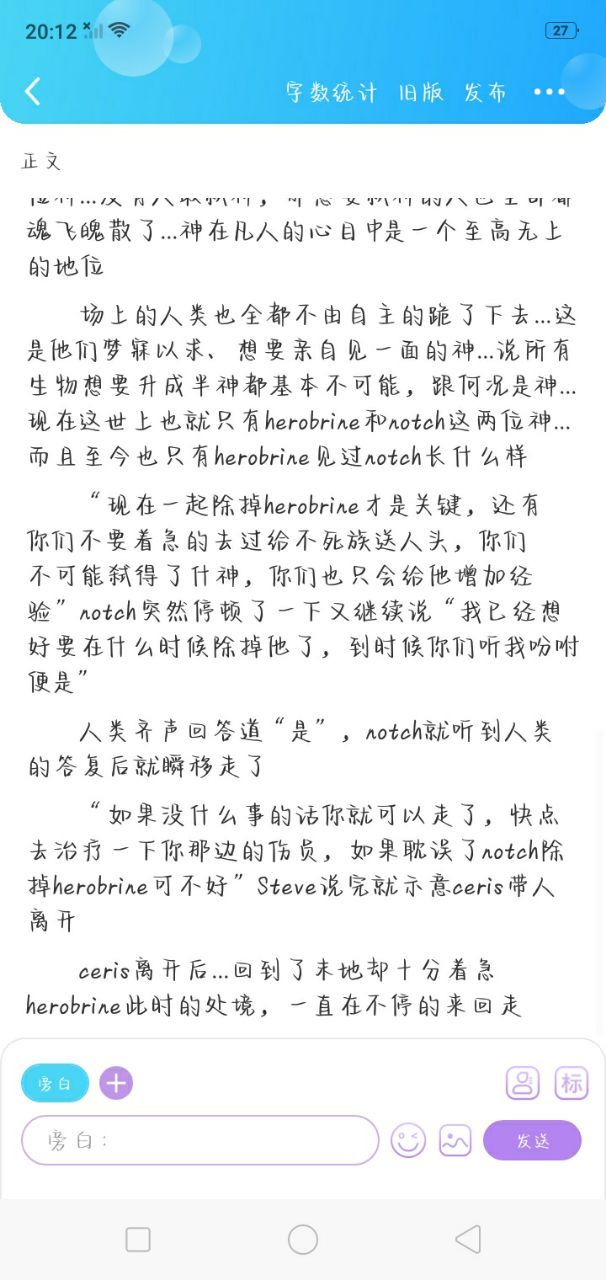 20:12
27
字数统计 旧版 发布
正文
魂飞魄散了...神在凡人的心目中是一个至高无上
的地位
场上的人类也全都不由自主的跪了下去...这
是他们梦寐以求、想要亲自见一面的神...说所有
生物想要升成半神都基本不可能，跟何况是神...
现在这世上也就只有herobrine和notch这两位神...
而且至今也只有herobrine见过notch长什么样
“现在一起除掉herobrine才是关键，还有
你们不要着急的去过给不死族送人头，你们
不可能弑得了什神，你们也只会给他增加经
验”notch突然停顿了一下又继续说“我已经想
好要在什么时候除掉他了，到时候你们听我吩咐
便是”
人类齐声回答道“是”，notch就听到人类
的答复后就瞬移走了
“如果没什么事的话你就可以走了，快点
去治疗一下你那边的伤员，如果耽误了notch除
掉herobrine可不好”Steve说完就示意ceris带人
离开
ceris离开后...回到了末地却十分着急
herobrine此时的处境，一直在不停的来回走
旁白
标
旁白：
发送